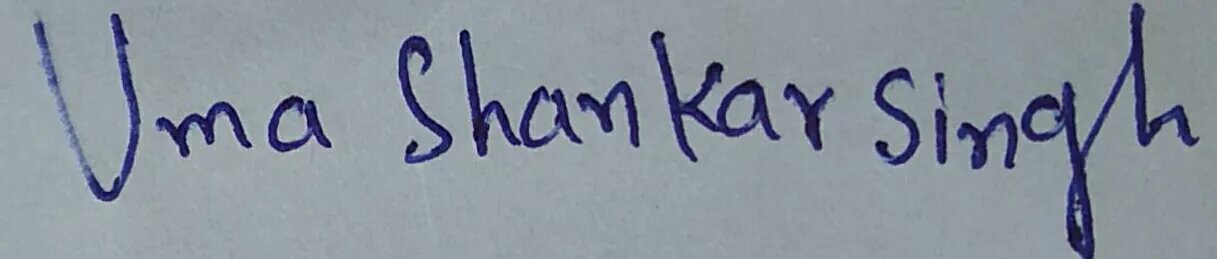 Uma Shankar Singh